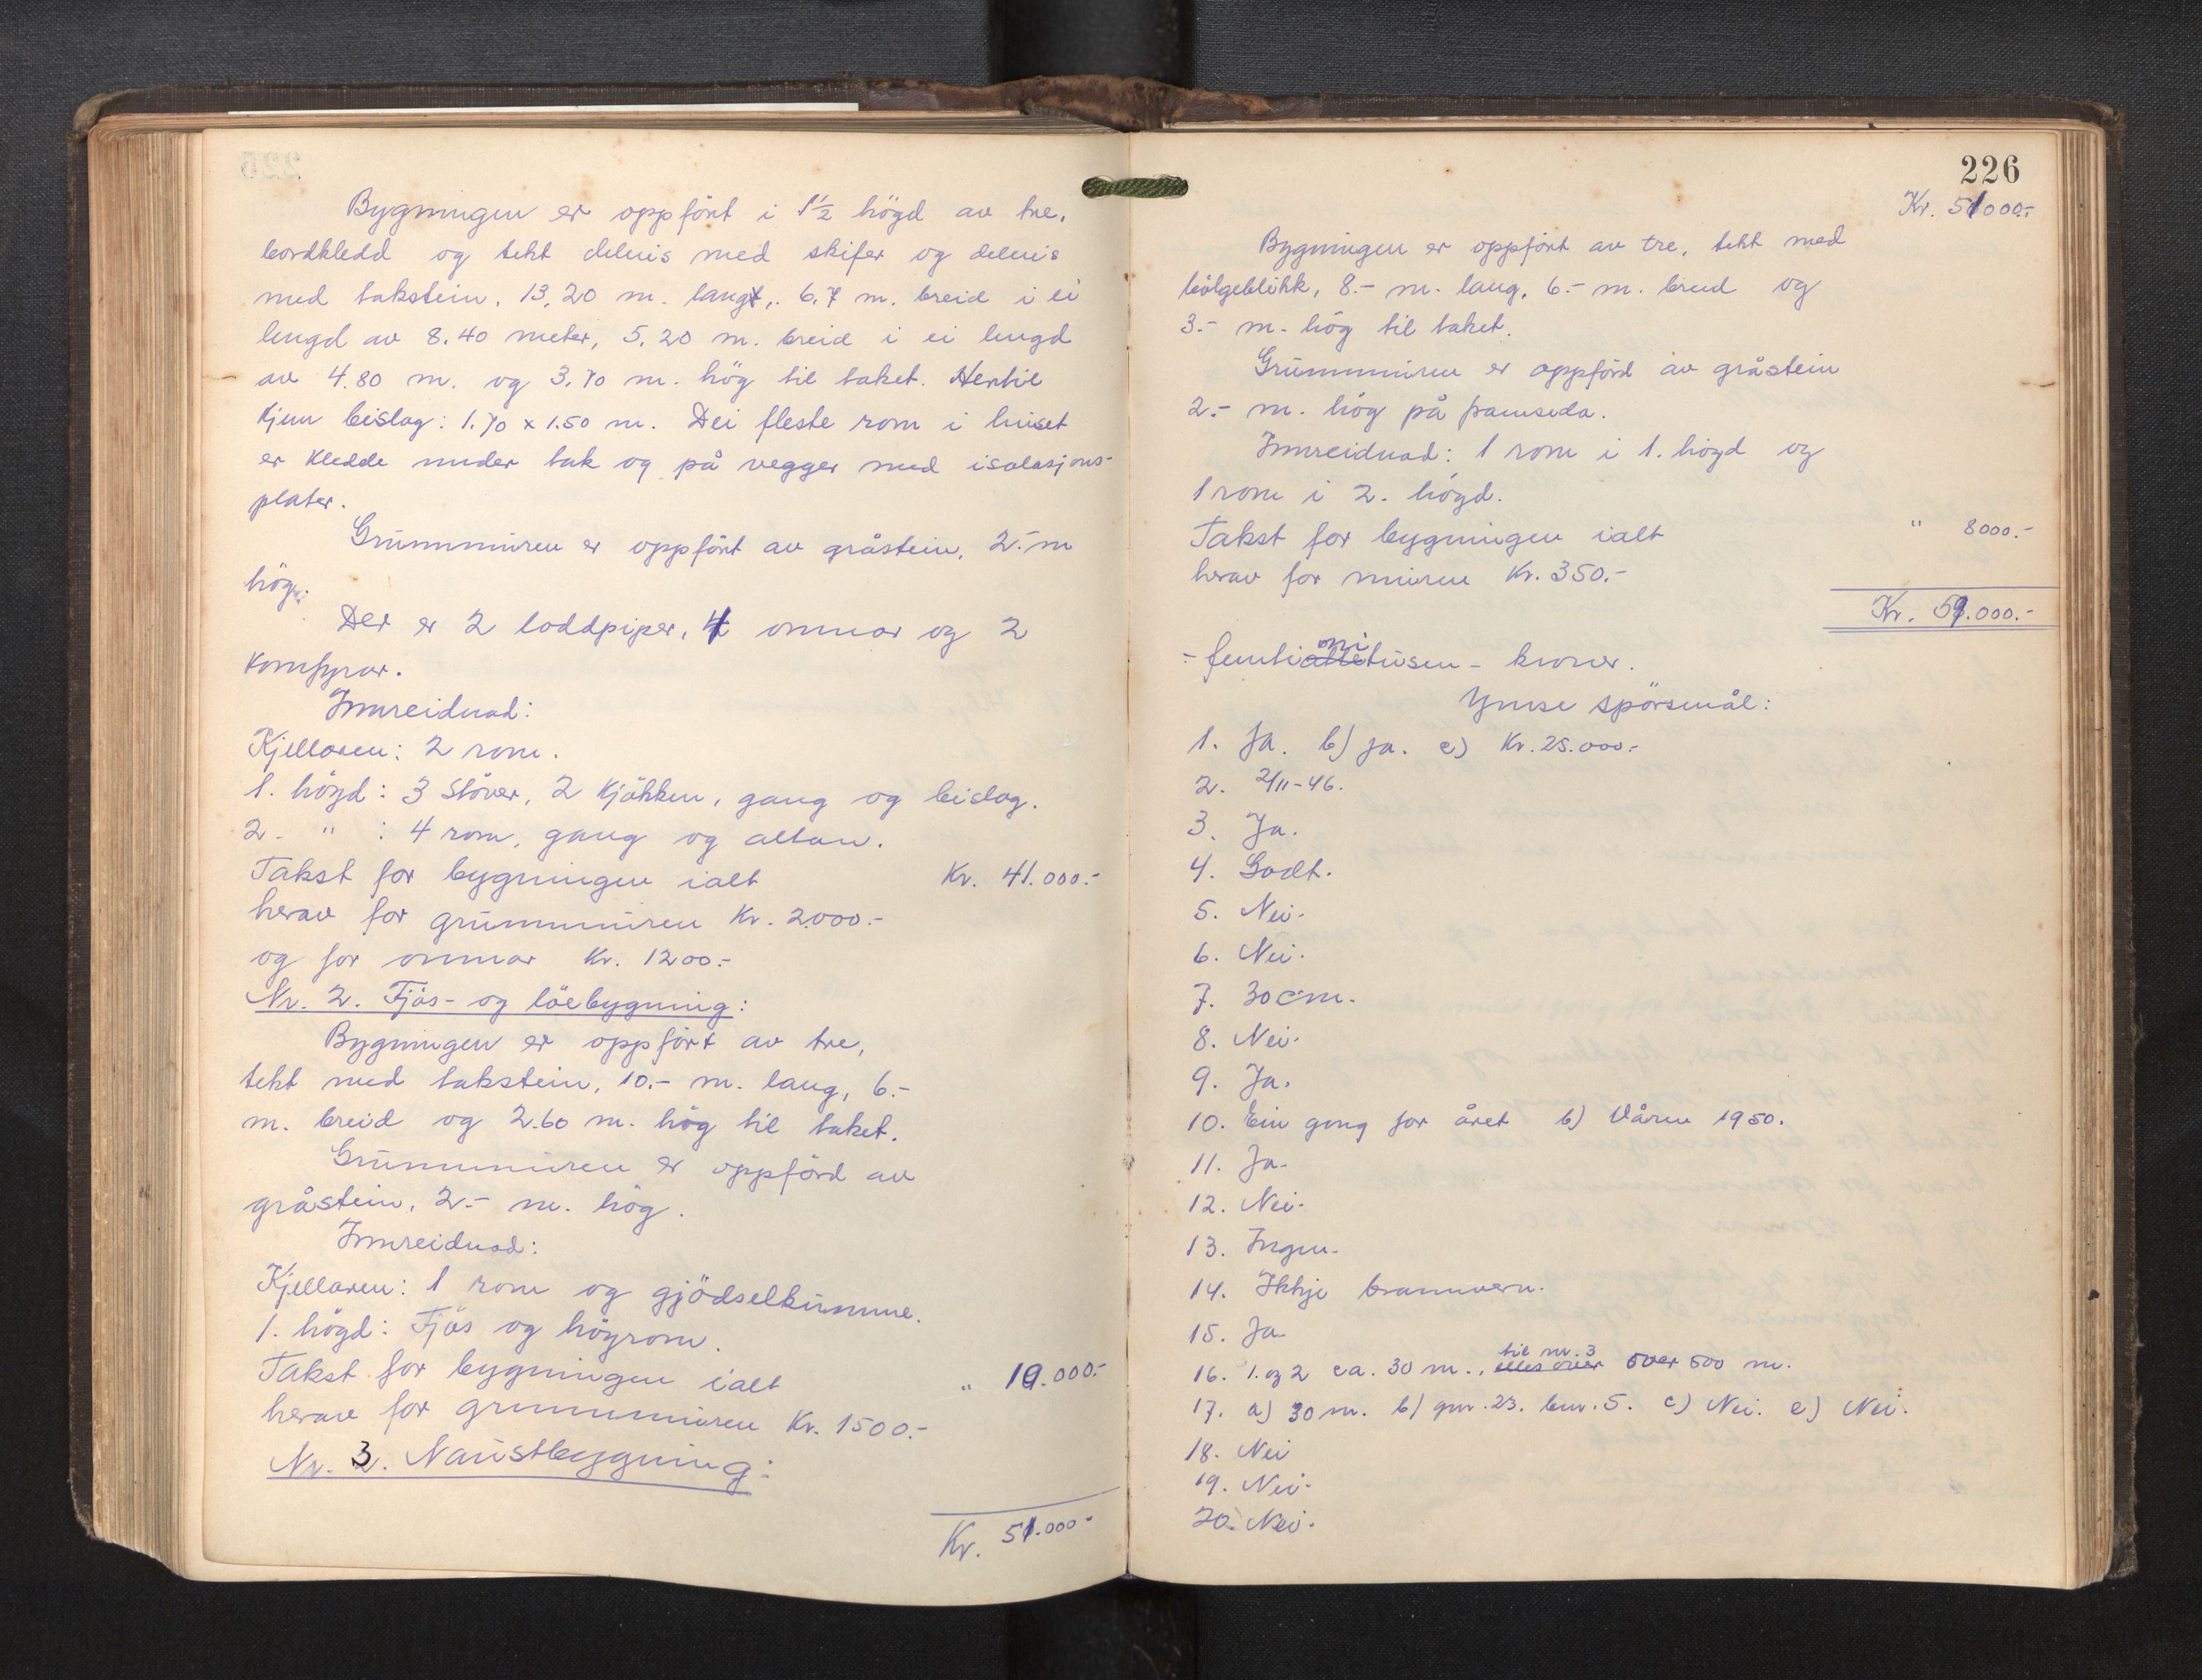 Bygningen er oppfört i 1½ högd av tre,
bordkledd og tekt delvis med skifer og delvis
med takstein, 13,20 m. lang, 6.7 m. breid i ei
lengd av 8.40 meter, 5.20 m. breid i ei lengd
av 4.80 m. og 3.70 m. hög til taket. Hertil
kjem bislag: 1.70 x 1.50 m. Dei fleste rom i huset
er kledde under tak og på vegger med isolasjons-
plater.
Grunnmuren er oppfört av gråstein, 2.- m
hög.
Der er 2 loddpiper, 4 omnar og 2
komfyrar.
Innreidnad:
Kjellaren: 2 rom.
1. högd: 3 stöver, 2 kjökken, gang og bislag.
2. " : 4 rom, gang og altan.
Takst for bygningen ialt Kr. 41.000.-
herav for grunnmuren Kr. 2000.-
og for omnar Kr. 1200.-
Nr. 2. Fjös- og löebygning:
Bygningen er oppfört av tre,
tekt med takstein, 10.- m. lang, 6.-
m. breid og 2.60 m. hög til taket.
Grunnmuren er oppförd av
gråstein, 2.- m. hög.
Innreidnad:
Kjellaren: 1 rom og gjödselkumme.
1. högd: Fjös og högrom.
Takst for bygningen ialt " 10.000.-
herav for grunnmuren Kr. 1500.-
Nr. 3. Naustbygning:
Kr. 51.000.-
226
Kr. 51000.-
Bygningen er oppfört av tre, tekt med
bölgeblikk, 8.- m. lang, 6.- m. breid og
3.- m. hög til taket.
Grunnmuren er oppförd av gråstein
2.- m. hög på framsida.
Innreidnad: 1 rom i 1. högd og
1 rom i 2. högd.
Takst for bygningen ialt " 8000.-
herav for muren Kr. 350.-
Kr. 59.000.-
ni
- femtiåttetusen - kroner.
Ymse spörsmål:
1. Ja. b) Ja. c) Kr. 25.000.-
2. 2/11-46.
3. Ja.
4. Godt.
5. Nei.
6. Nei.
7. 30 cm.
8. Nei.
9. Ja.
10. Ein gong for året b) Våren 1950.
11. Ja.
12. Nei.
13. Ingen.
14. Ikkje brannvern.
15. Ja.
til nr. 3
16. 1. og 2 ca. 30 m., elles over over 500 m.
17. a) 30 m. b) gnr. 23. bnr. 5. c) Nei. e) Nei.
18. Nei
19. Nei.
20. Nei.